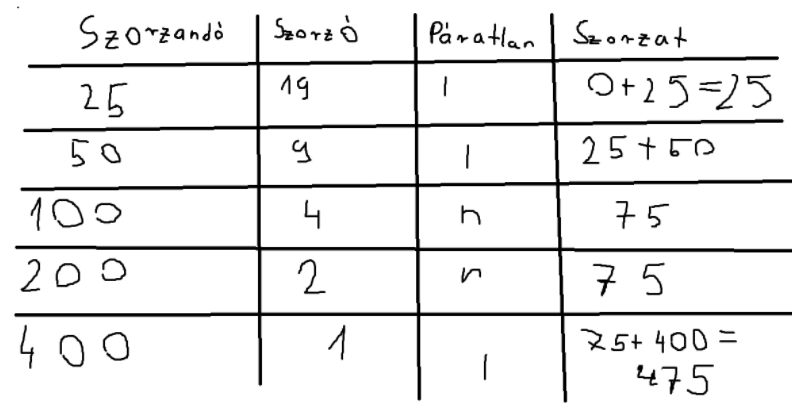 Szorzandó Szorzó Páratlan Szorzat
25 19 i 0+25=25
50 9 i 25+50
100 4 n 75
200 2 n 75
400 1 i 75+400=
475